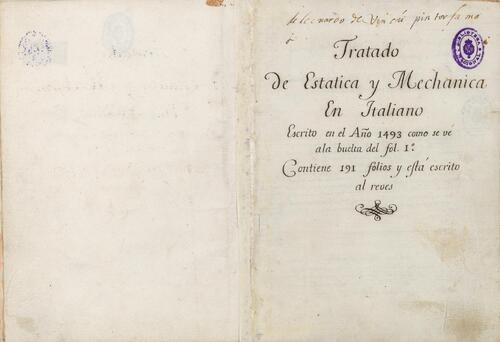 de leonardo de Vinci pintor famo
Tratado
De Estatica y Mechanica
En Italiano
Escrito en el Año 1493 como se vé
ala buelta del fol. 1.º
Contiene 191 folios y está escrito
al reves